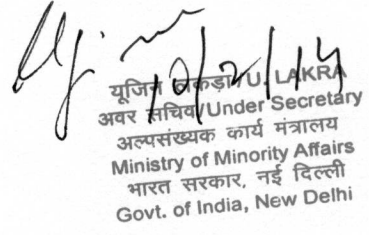 10/2/14
यूजिन लकड़ा/U. LAKRA
अवर सचिव/Under Secretary
अल्पसंख्यक कार्य मंत्रालय
Ministry of Minority Affairs
भारत सरकार, नई दिल्ली
Govt. of India, New Delhi